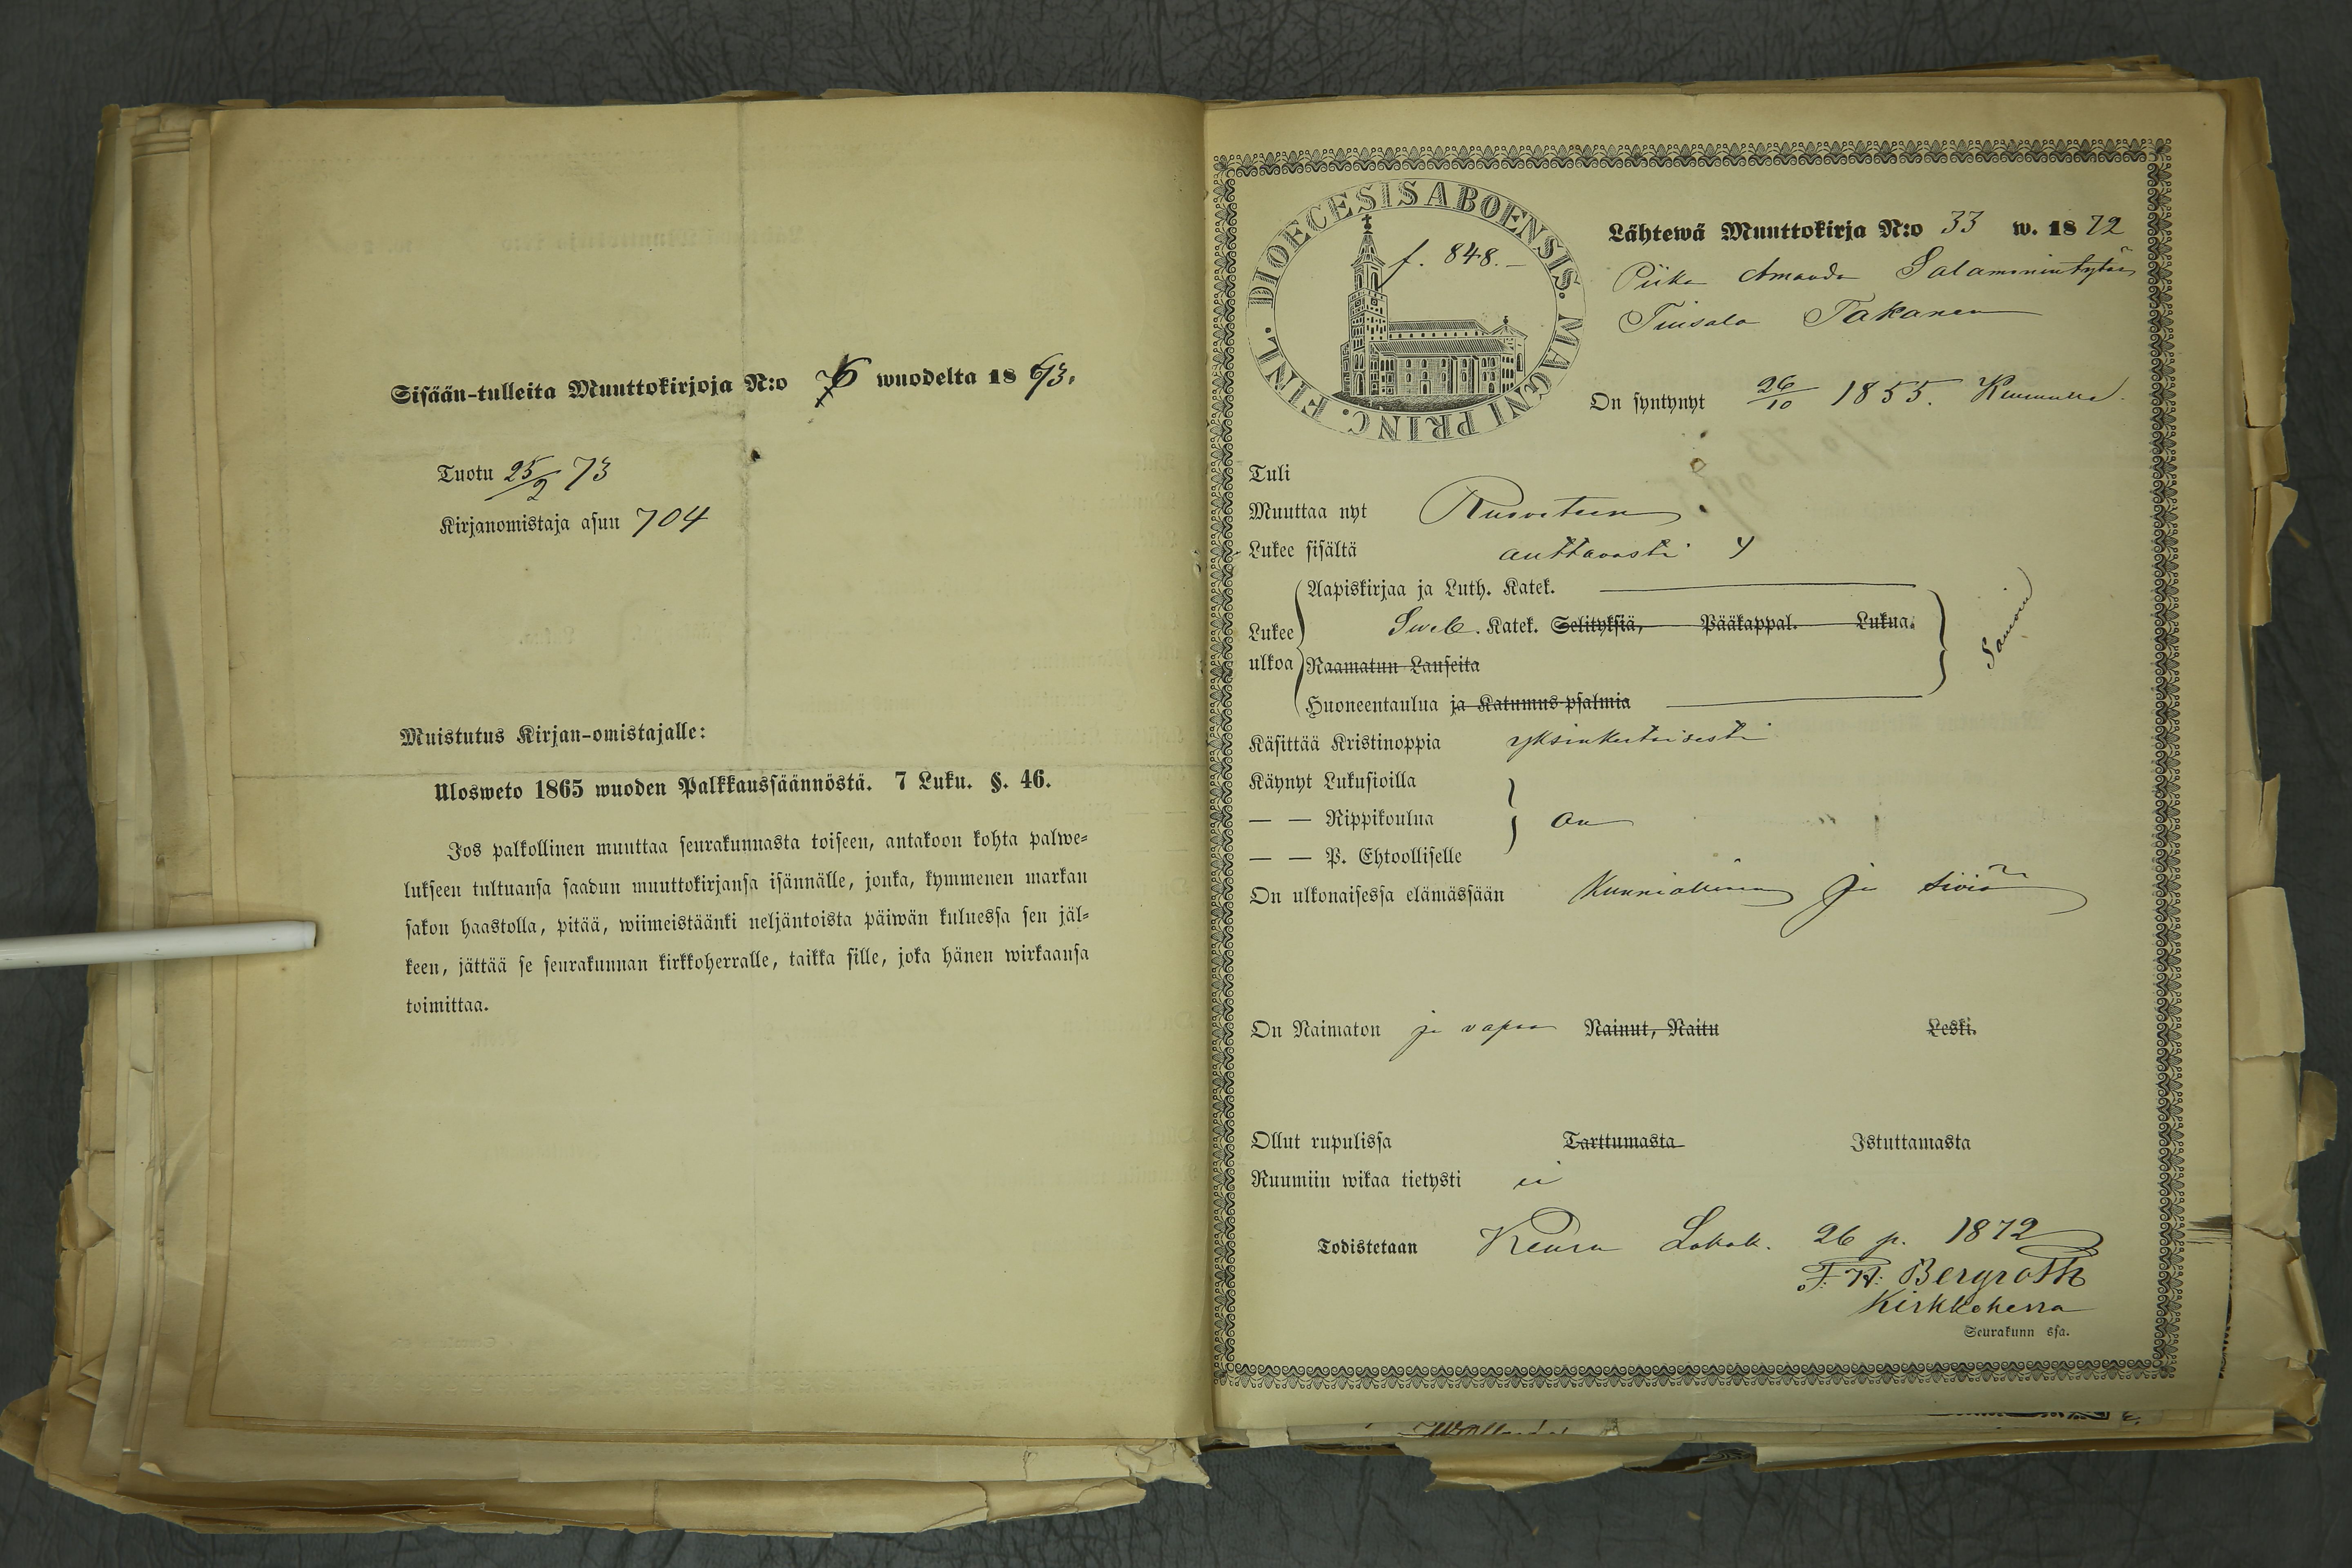 Sisään-tulleita Muuttokirjoja N:o 6 wuodelta 1873.
Tuotu 25/2 73
Kirjanomistaja asuu 704
Muistutus Kirjan-omistajalle:
Ulosweto 1865 wuoden Palkkaussäännöstä. 7 Luku. §. 46.
Jos palkollinen muuttaa seurakunnasta toiseen, antakoon kohta palwe-
lukseen tultuansa saadun muuttokirjansa isännälle, jonka, kymmenen markan
sakon haastolla, pitää, wiimeistäänki neljäntoista päiwän kuluessa sen jäl-
keen, jättää se seurakunnan kirkkoherralle, taikka sille, joka hänen wirkaansa
toimittaa.
DIOECESIS ABOENSIS. MAGNI PRINC. FINL.
f. 848.-
Lähtewä Muuttokirja N:o 33 w. 1872
Piika Amanda Salamonintytär
Tiusala Takanen
On syntynyt 26/10 1855.
Tuli
Muuttaa nyt Ruoveteen
Lukee sisältä auttavasti
Lukee ulkoa
Aapiskirjaa ja Luth. Katek.
Sweb. Katek. Selityksiä, Pääkappal. Lukua.
Raamatun Lauseita
Huoneentaulua ja Katumus-psalmia
Samoin
Käsittää Kristinoppia yksinkertaisesti
Käynyt Lukusioilla
— — Rippikoulua on
— — P. Ehtoolliselle
On ulkonaisessa elämässään Kunniallinen ja siviä
On Naimaton ja vapaa Nainut, Naitu Leski.
Ollut rupulissa Tarttumasta Istuttamasta
Ruumiin wikaa tietysti ei
Todistetaan Keuru Lokak. 26 p. 1872
F. W. Bergroth
Kirkkoherra
Seurakunn ssa.